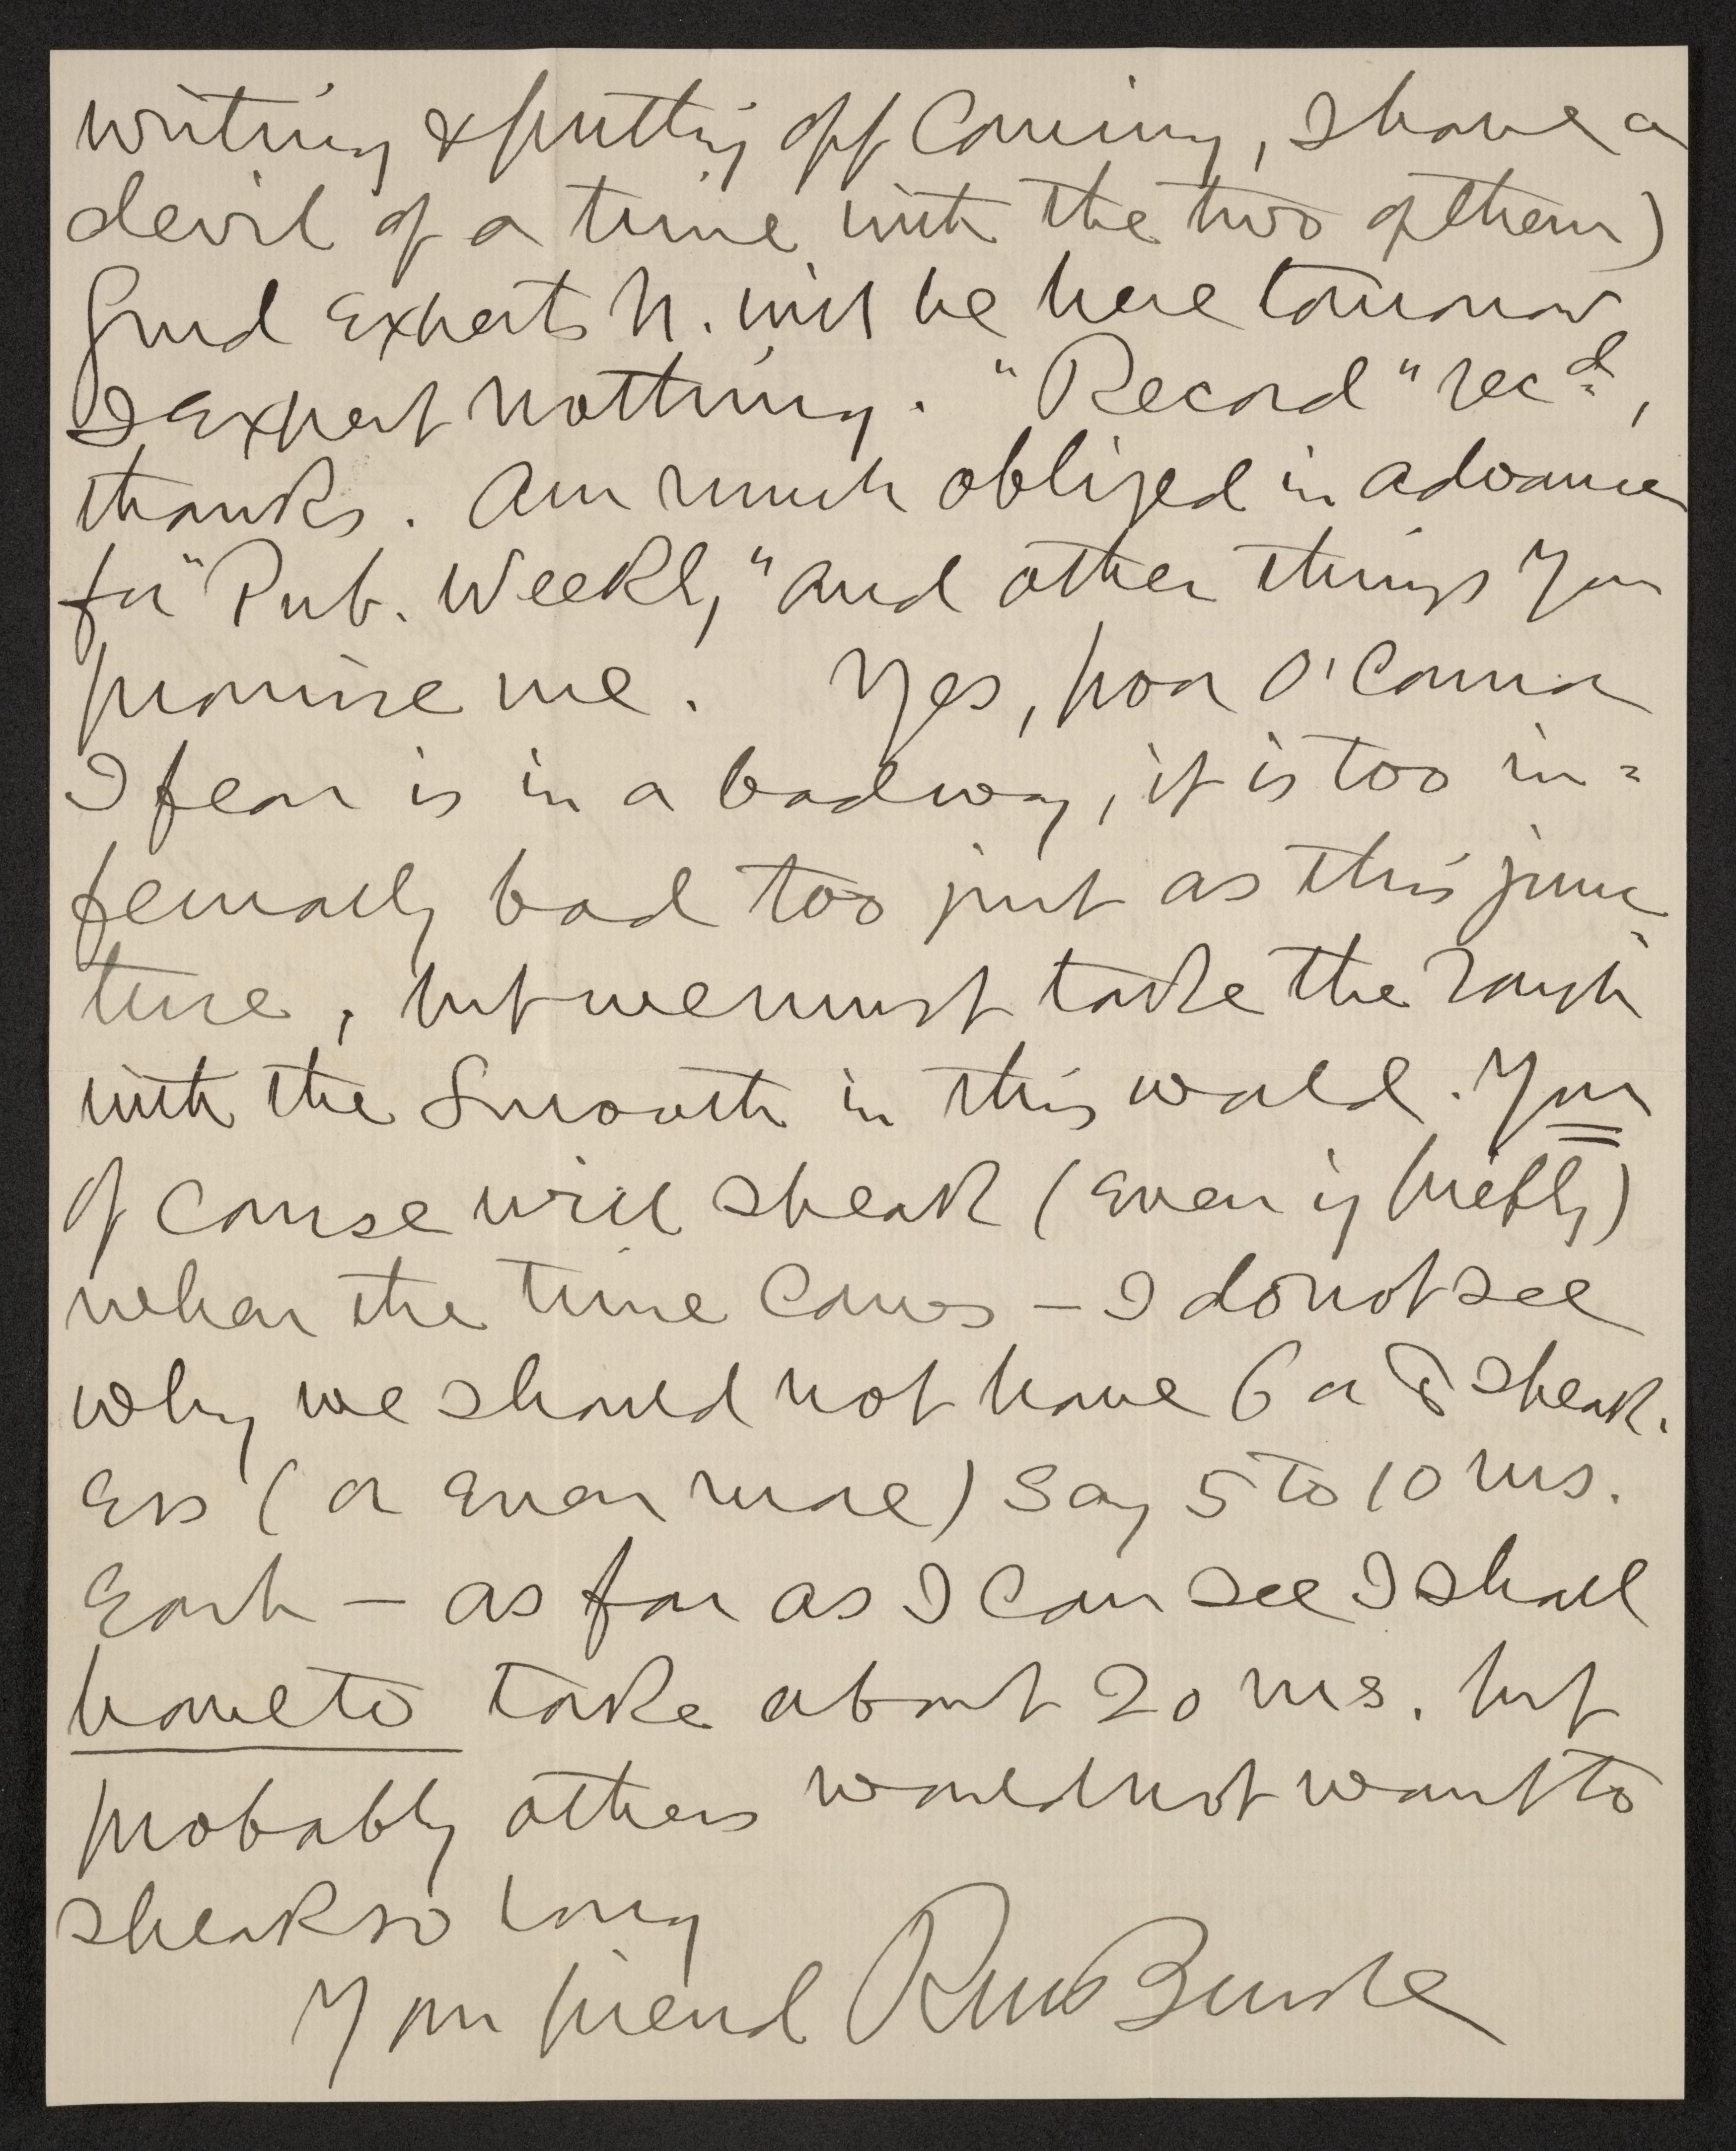 writing & putting off coming, I have a
devil of a time with the two of them)
Gurd expects N. will be here tomorrow,
I expect nothing. "Record" recd,
thanks. Am much obliged in advance
for "Pub. Weekly," and other things you
promise me. Yes, poor O'Connor
I fear is in a bad way, it is too in=
fernally bad too just as this junc-
ture, but we must take the rough
with the smooth in this world. You
of course will speak (even if briefly)
when the time comes – I do not see
why we should not have 6 or 8 speak.
ers (or even more) say 5 to 10 ms.
each – as far as I can see I shall
have to take about 20 ms. but
probably others would not want to
speak so long
Your friend RM Bucke